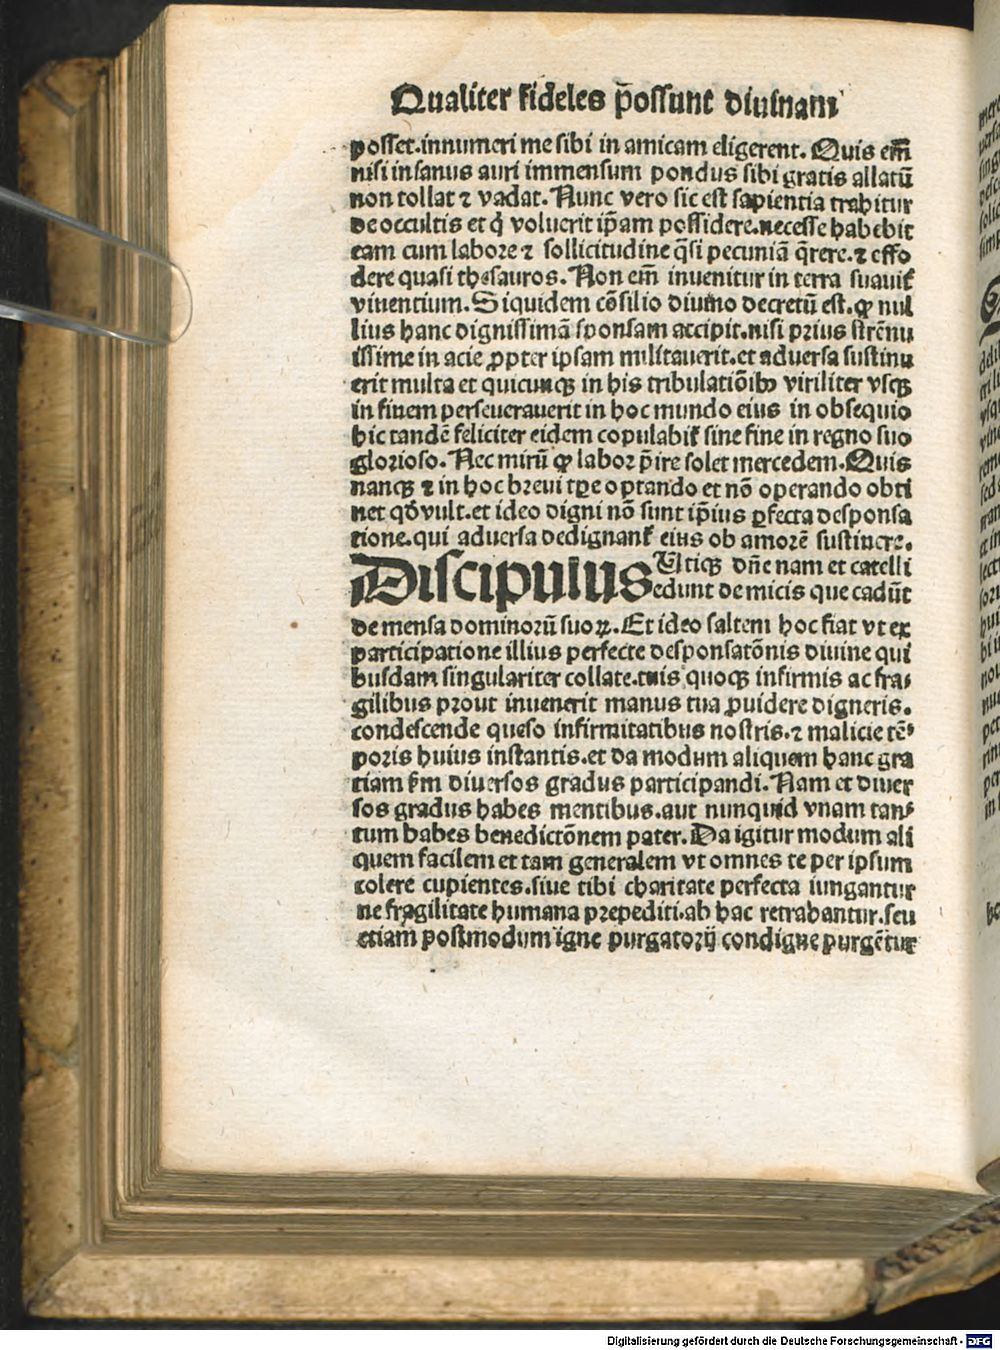 Qualiter fideles p̄ossunt diuinam
posset.innumeri me sibi in amicam eligerent. Quis em̄
nisi insanus auri immensum pondus sibi gratis allatū
non tollat ⁊ vadat. Nunc vero sic est sapientia trahitur
de occultis et q̇ voluerit ip̄am possidere.necesse habebit
eam cum labore ⁊ sollicitudine q̄si pecuniā q̄rere.⁊ effo
dere quasi thesauros. Non em̄ inuenitur in terra suauit᷑
viuentium. Siquidem cōsilio diuino decretū est.ꝙ nul
lius hanc dignissimā sponsam accipit.nisi prius strēnu
issime in acie ꝓpter ipsam militauerit.et aduersa sustinu
erit multa et quicunqꝫ in his tribulatiōibꝰ viriliter vsqꝫ
in finem perseuerauerit in hoc mundo eius in obsequio
hic tandē feliciter eidem copulabit᷑ sine fine in regno suo
glorioso. Nec mirū ꝙ labor p̄ire solet mercedem. Quis
nanqꝫ ⁊ in hoc breui tꝑe optando et nō operando obti
net qđ vult.et ideo digni nō sunt ip̄ius ꝑfecta desponsa
tione.qui aduersa dedignant᷑ eius ob amorē sustinere.
Discipulus Utiqꝫ dn̄e nam et catelli
edunt de micis que cadūt
de mensa dominorū suoꝝ. Et ideo saltem hoc fiat vt ex
participatione illius perfecte desponsatōnis diuine qui
busdam singulariter collate.tuis quoqꝫ infirmis ac fra⸗
gilibus prout inuenerit manus tua ꝓuidere digneris.
condescende queso infirmitatibus nostris.⁊ malicie tē⸗
poris huius instantis.et da modum aliquem hanc gra
tiam ẜm diuersos gradus participandi. Nam et diuer
sos gradus habes mentibus.aut nunquid vnam tan⸗
tum habes benedictōnem pater. Da igitur modum ali
quem facilem et tam generalem vt omnes te per ipsum
colere cupientes.siue tibi charitate perfecta iungantur
ne fragilitate humana prepediti.ab hac retrahantur.seu
etiam postmodum igne purgatorij condigne purgētur
Digitalisierung gefördert durch die Deutsche Forschungsgemeinschaft - DFG